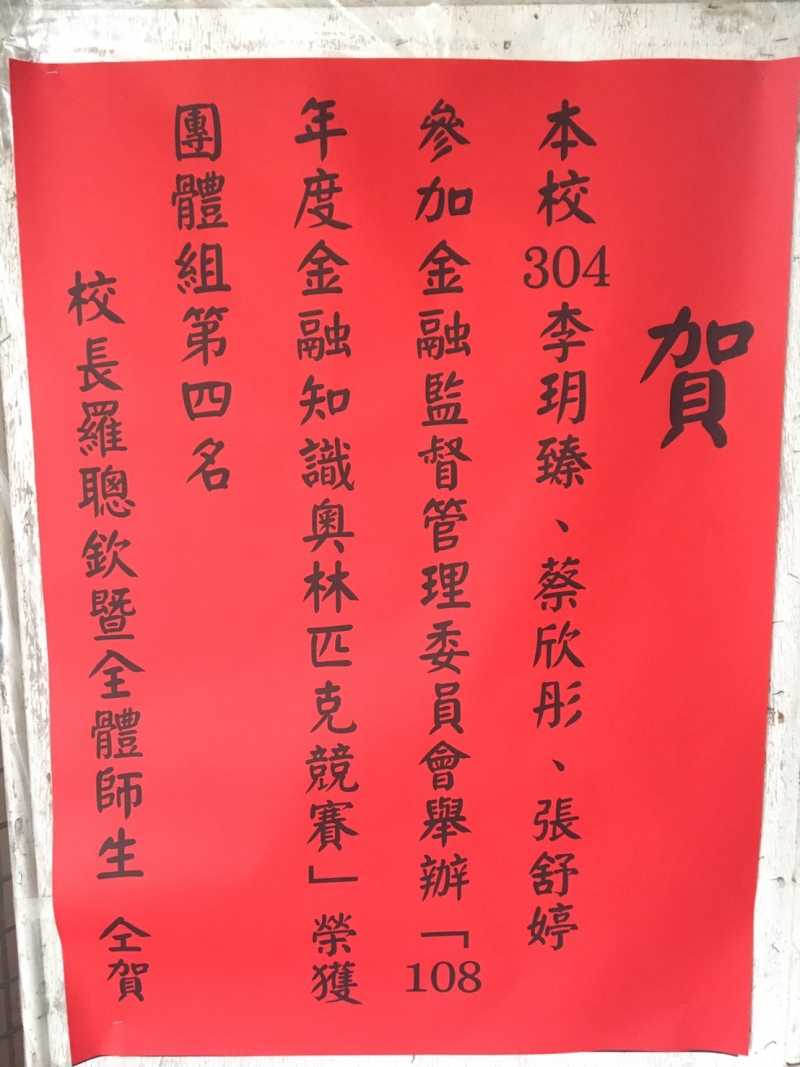 賀
本校304李玥臻、蔡欣彤、張舒婷
參加金融監督管理委員會舉辦「108
年度金融知識奧林匹克競賽」榮獲
團體組第四名
校長羅聰欽暨全體師生 仝賀